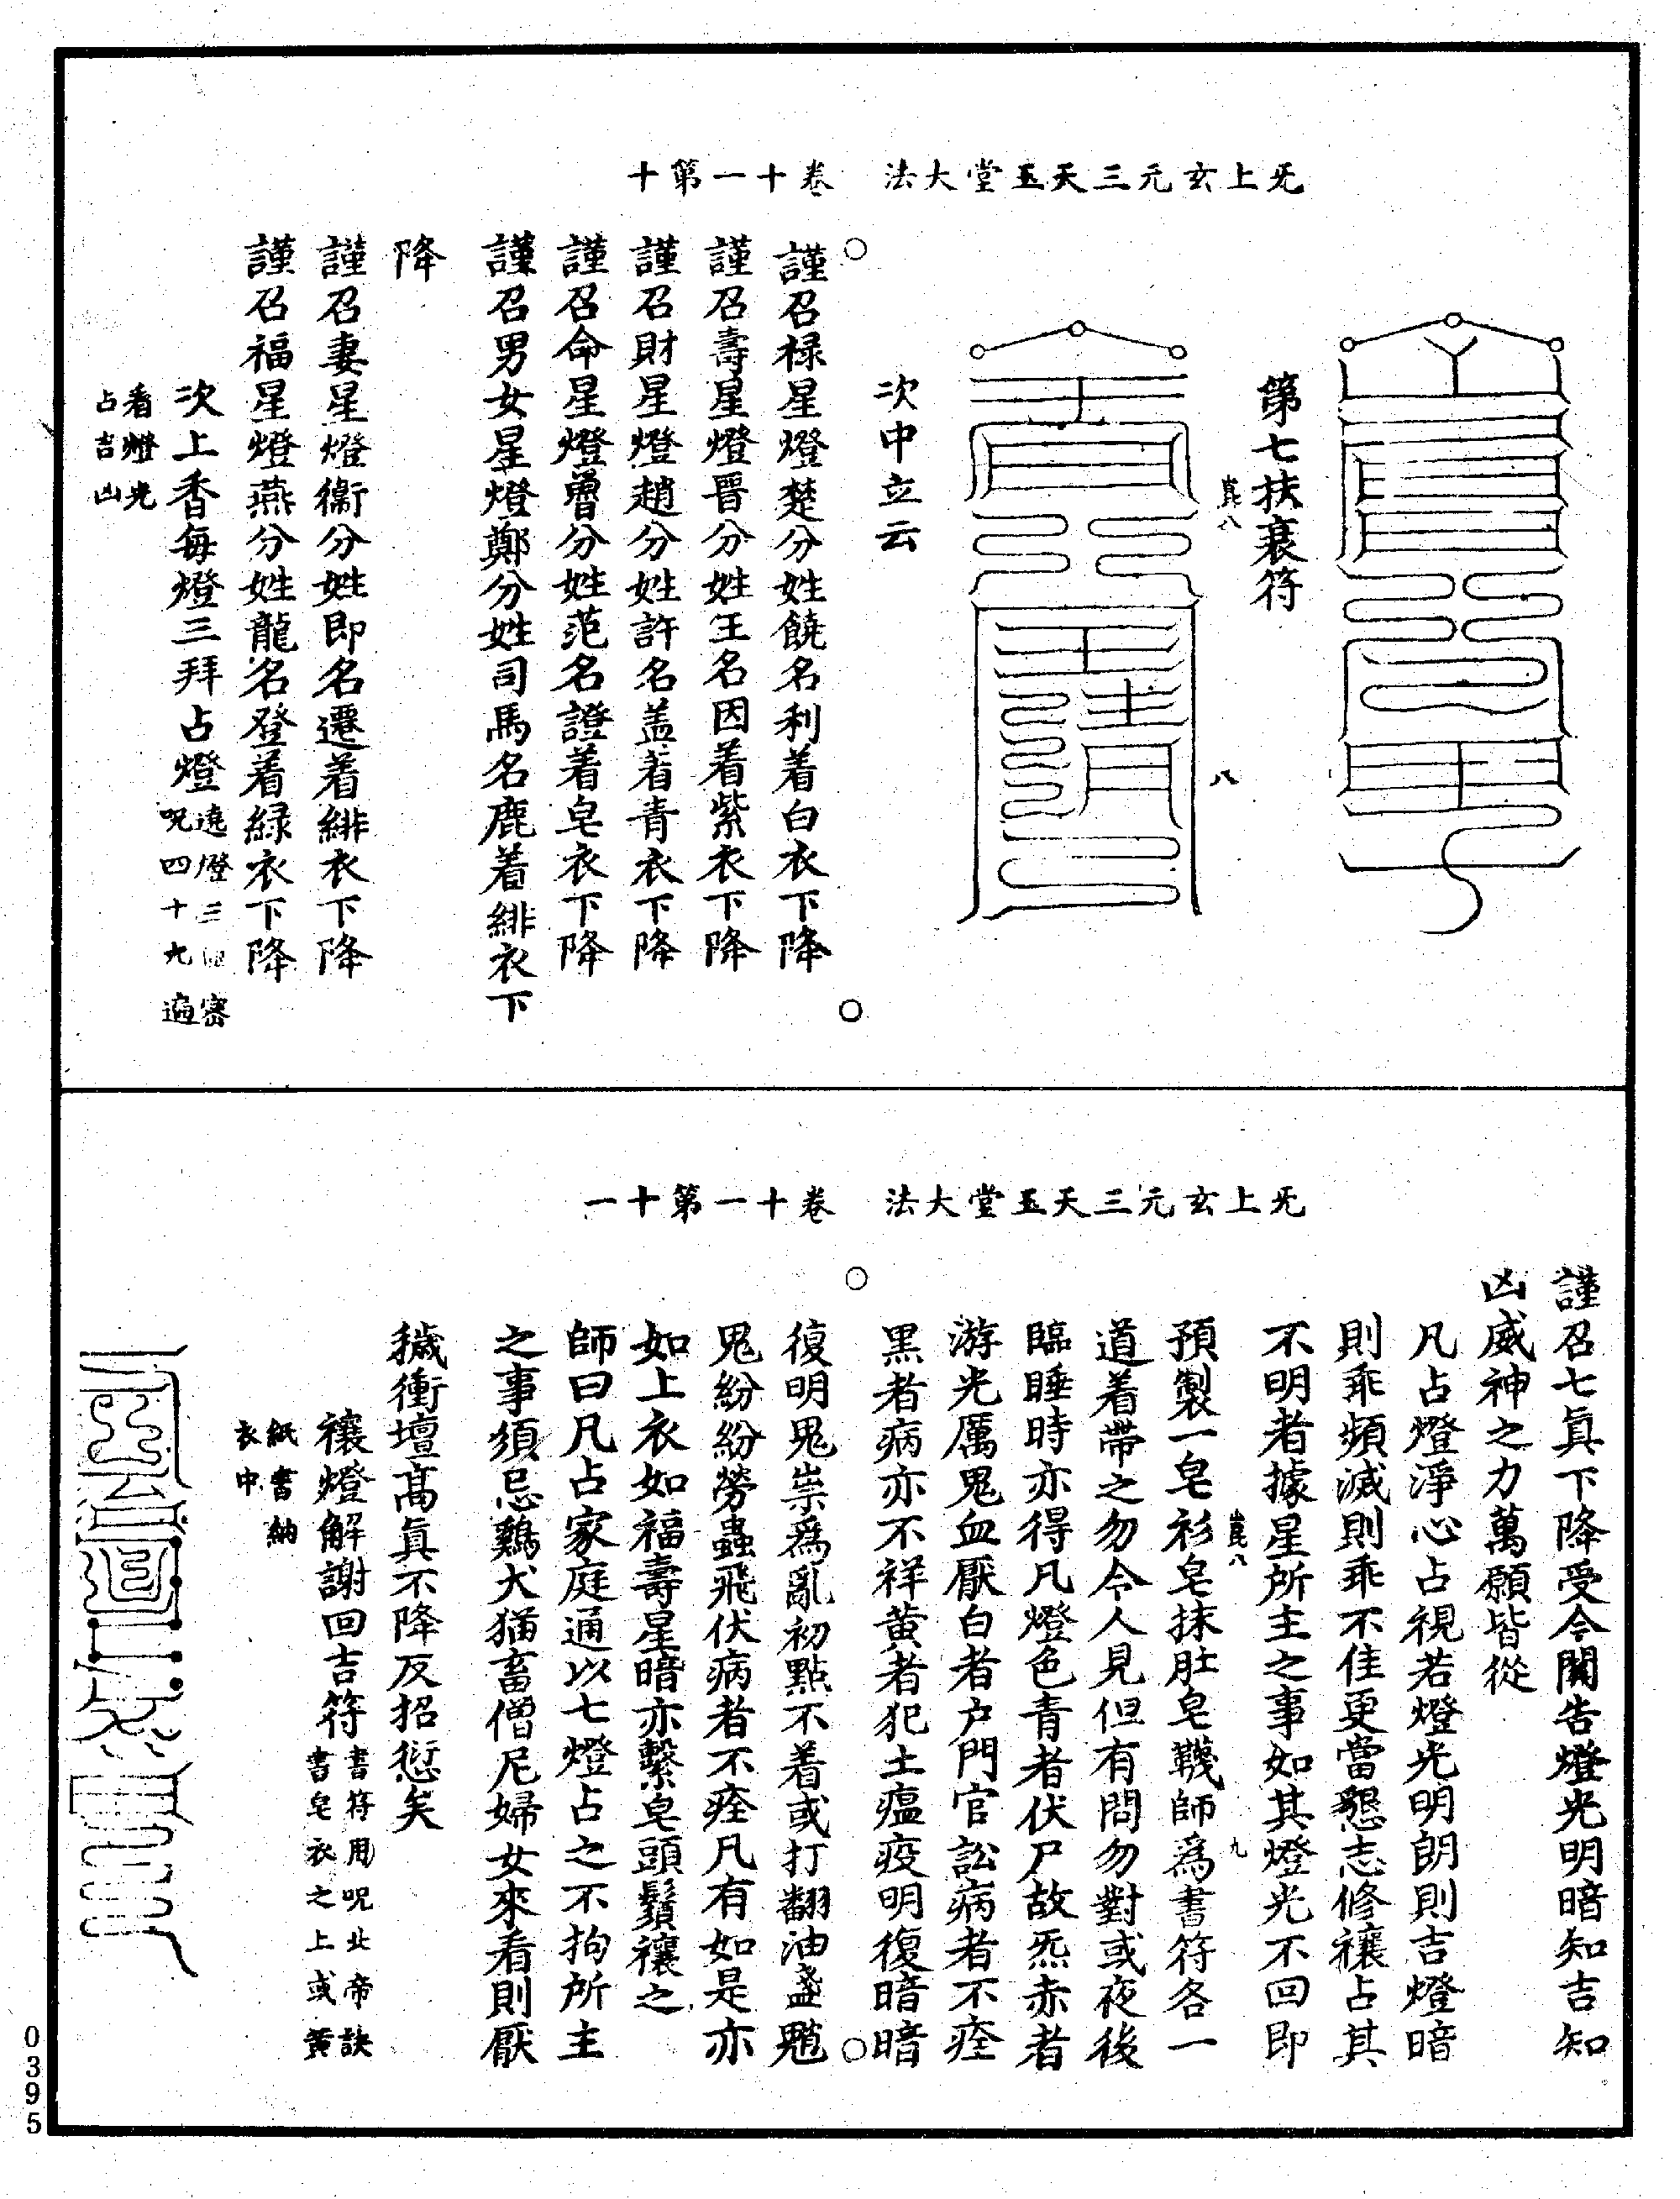 无上玄元三天玉堂大法　卷十一第十
第七扶衰符
次中立云
謹召禄星燈楚分姓饒名利着白衣下降
謹召壽星燈晋分姓王名因着紫衣下降
謹召財星燈趙分姓許名盖着青衣下降
謹召命星燈魯分姓范名證着皂衣下降
謹召男女星燈鄭分姓司馬名鹿着緋衣下
降
謹召妻星燈衛分姓即名遷着緋衣下降
謹召福星燈燕分姓龍名登着緑衣下降
次上香每燈三拜占燈遶燈三匝密
呪四十九遍
看燈光
占吉凶
无上玄元三天玉堂大法　卷十一第十一
謹召七眞下降受今關告燈光明暗知吉知
凶威神之力萬願皆從
凡占燈淨心占視若燈光明朗則吉燈暗
則乖頻滅則乖不佳更當懇志修禳占其
不明者據星所主之事如其燈光不回即
預製一皂衫皂抹肚皂襪師爲書符各一
道着帶之勿令人見但有問勿對或夜後
臨睡時亦得凡燈色青者伏尸故炁赤者
游光厲鬼血厭白者户門官訟病者不痊
黑者病亦不祥黄者犯土瘟疫明復暗暗
復明鬼祟爲亂初點不着或打翻油盞魈
鬼紛紛勞蟲飛伏病者不痊凡有如是亦
如上衣如福壽星暗亦繫皂頭鬚禳之
師曰凡占家庭通以七燈占之不拘所主
之事須忌鷄犬猫畜僧尼婦女來看則厭
穢衝壇高眞不降反招愆矣
禳燈解謝回吉符書符用呪北帝訣
書皂衣之上或黄
紙書納
衣中
0395